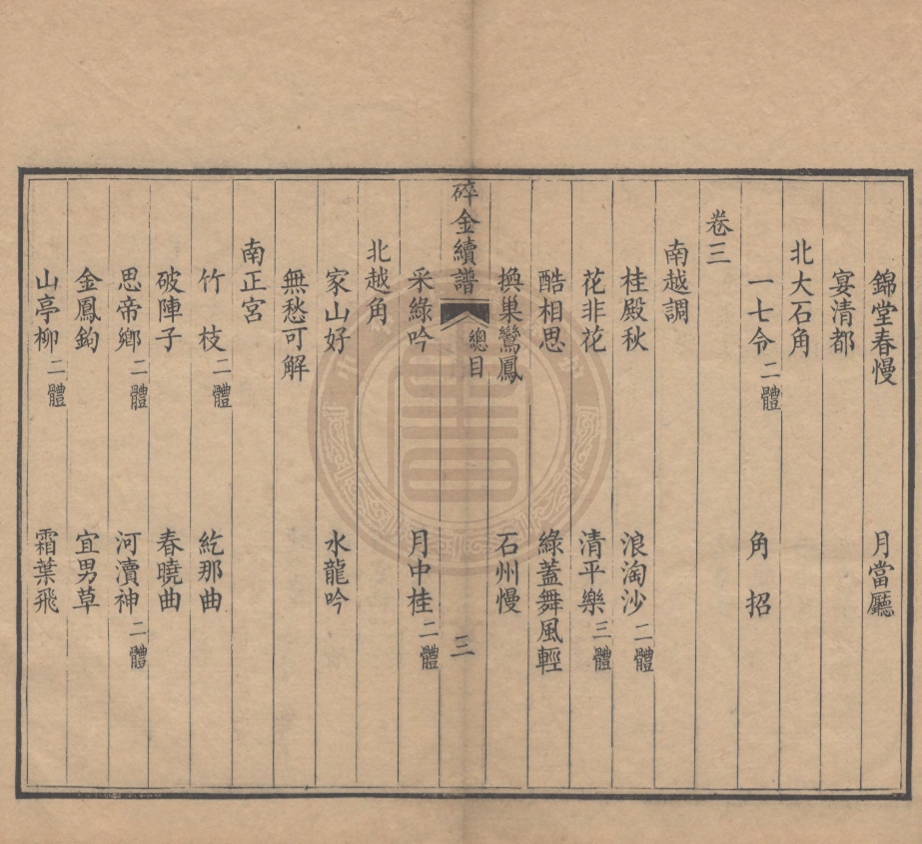 錦堂春慢　月當廳
宴清都
北大石角
一七令二體　角招
卷三
南越調
桂殿秋　浪淘沙二體
花非花　清平樂三體
酷相思　綠蓋舞風輕
換巢鸞鳳　石州慢
碎金續譜　總目　三
采綠吟　月中桂二體
北越角
家山好　水龍吟
無愁可解
南正宮
竹枝二體　紇那曲
破陣子　春曉曲
思帝鄉二體　河瀆神二體
金鳳鉤　宜男草
山亭柳二體　霜葉飛